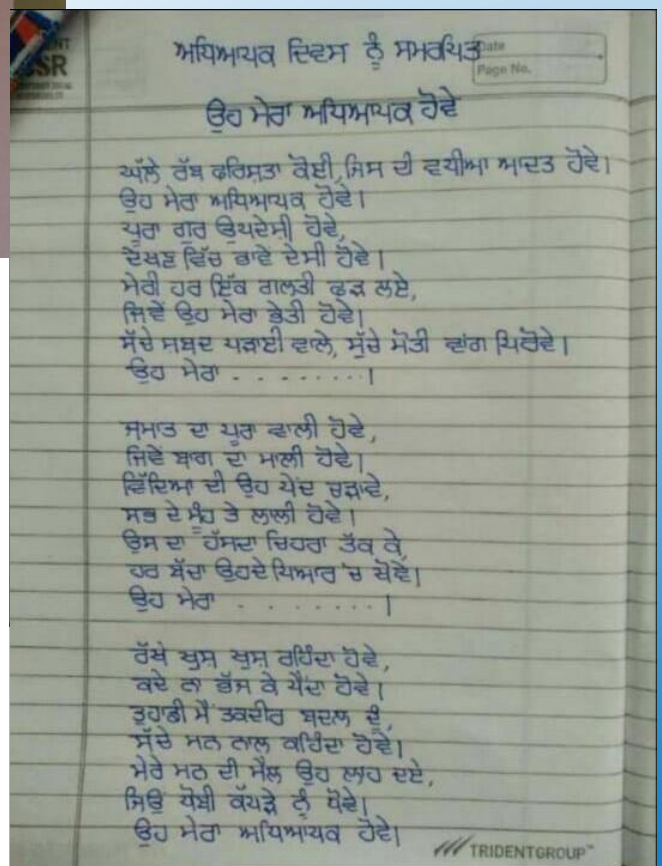 ਅਧਿਆਪਕ ਦਿਵਸ ਨੂੰ ਸਮਰਪਿਤ
Date
Page No.
ਉਹ ਮੇਰਾ ਅਧਿਆਪਕ ਹੋਵੇ
ਘੱਲੇ ਰੱਬ ਫਰਿਸ਼ਤਾ ਕੋਈ, ਜਿਸ ਦੀ ਵਧੀਆ ਆਦਤ ਹੋਵੇ।
ਉਹ ਮੇਰਾ ਅਧਿਆਪਕ ਹੋਵੇ।
ਪੂਰਾ ਗੁਰ ਉਪਦੇਸੀ ਹੋਵੇ,
ਦੇਖਣ ਵਿੱਚ ਭਾਵੇ ਦੇਸੀ ਹੋਵੇ।
ਮੇਰੀ ਹਰ ਇੱਕ ਗਲਤੀ ਫੜ ਲਏ,
ਜਿਵੇਂ ਉਹ ਮੇਰਾ ਭੇਤੀ ਹੋਵੇ।
ਸੱਚੇ ਸ਼ਬਦ ਪੜਾਈ ਵਾਲੇ, ਸੁੱਚੇ ਮੋਤੀ ਵਾਂਗ ਪਿਰੋਵੇ।
ਉਹ ਮੇਰਾ . . . . . . . . ।
ਜਮਾਤ ਦਾ ਪੂਰਾ ਵਾਲੀ ਹੋਵੇ,
ਜਿਵੇਂ ਬਾਗ ਦਾ ਮਾਲੀ ਹੋਵੇ।
ਵਿੱਦਿਆ ਦੀ ਉਹ ਪੇਂਦ ਚੜਾਵੇ,
ਸਭ ਦੇ ਮੂੰਹ ਤੇ ਲਾਲੀ ਹੋਵੇ।
ਉਸ ਦਾ ਹੱਸਦਾ ਚਿਹਰਾ ਤੱਕ ਕੇ,
ਹਰ ਬੱਚਾ ਉਹਦੇ ਪਿਆਰ 'ਚ ਖੋਵੇ।
ਉਹ ਮੇਰਾ . . . . . . . . ।
ਰੱਖੇ ਖੁਸ਼ ਖੁਸ਼ ਰਹਿੰਦਾ ਹੋਵੇ,
ਕਦੇ ਨਾ ਭੱਜ ਕੇ ਪੈਂਦਾ ਹੋਵੇ।
ਤੁਹਾਡੀ ਮੈਂ ਤਕਦੀਰ ਬਦਲ ਦੂੰ,
ਸੱਚੇ ਮਨ ਨਾਲ ਕਹਿੰਦਾ ਹੋਵੇ।
ਮੇਰੇ ਮਨ ਦੀ ਮੈਲ ਉਹ ਲਾਹ ਦਏ,
ਜਿਉਂ ਧੋਬੀ ਕੱਪੜੇ ਨੂੰ ਧੋਵੇ।
ਉਹ ਮੇਰਾ ਅਧਿਆਪਕ ਹੋਵੇ।
TRIDENTGROUP™